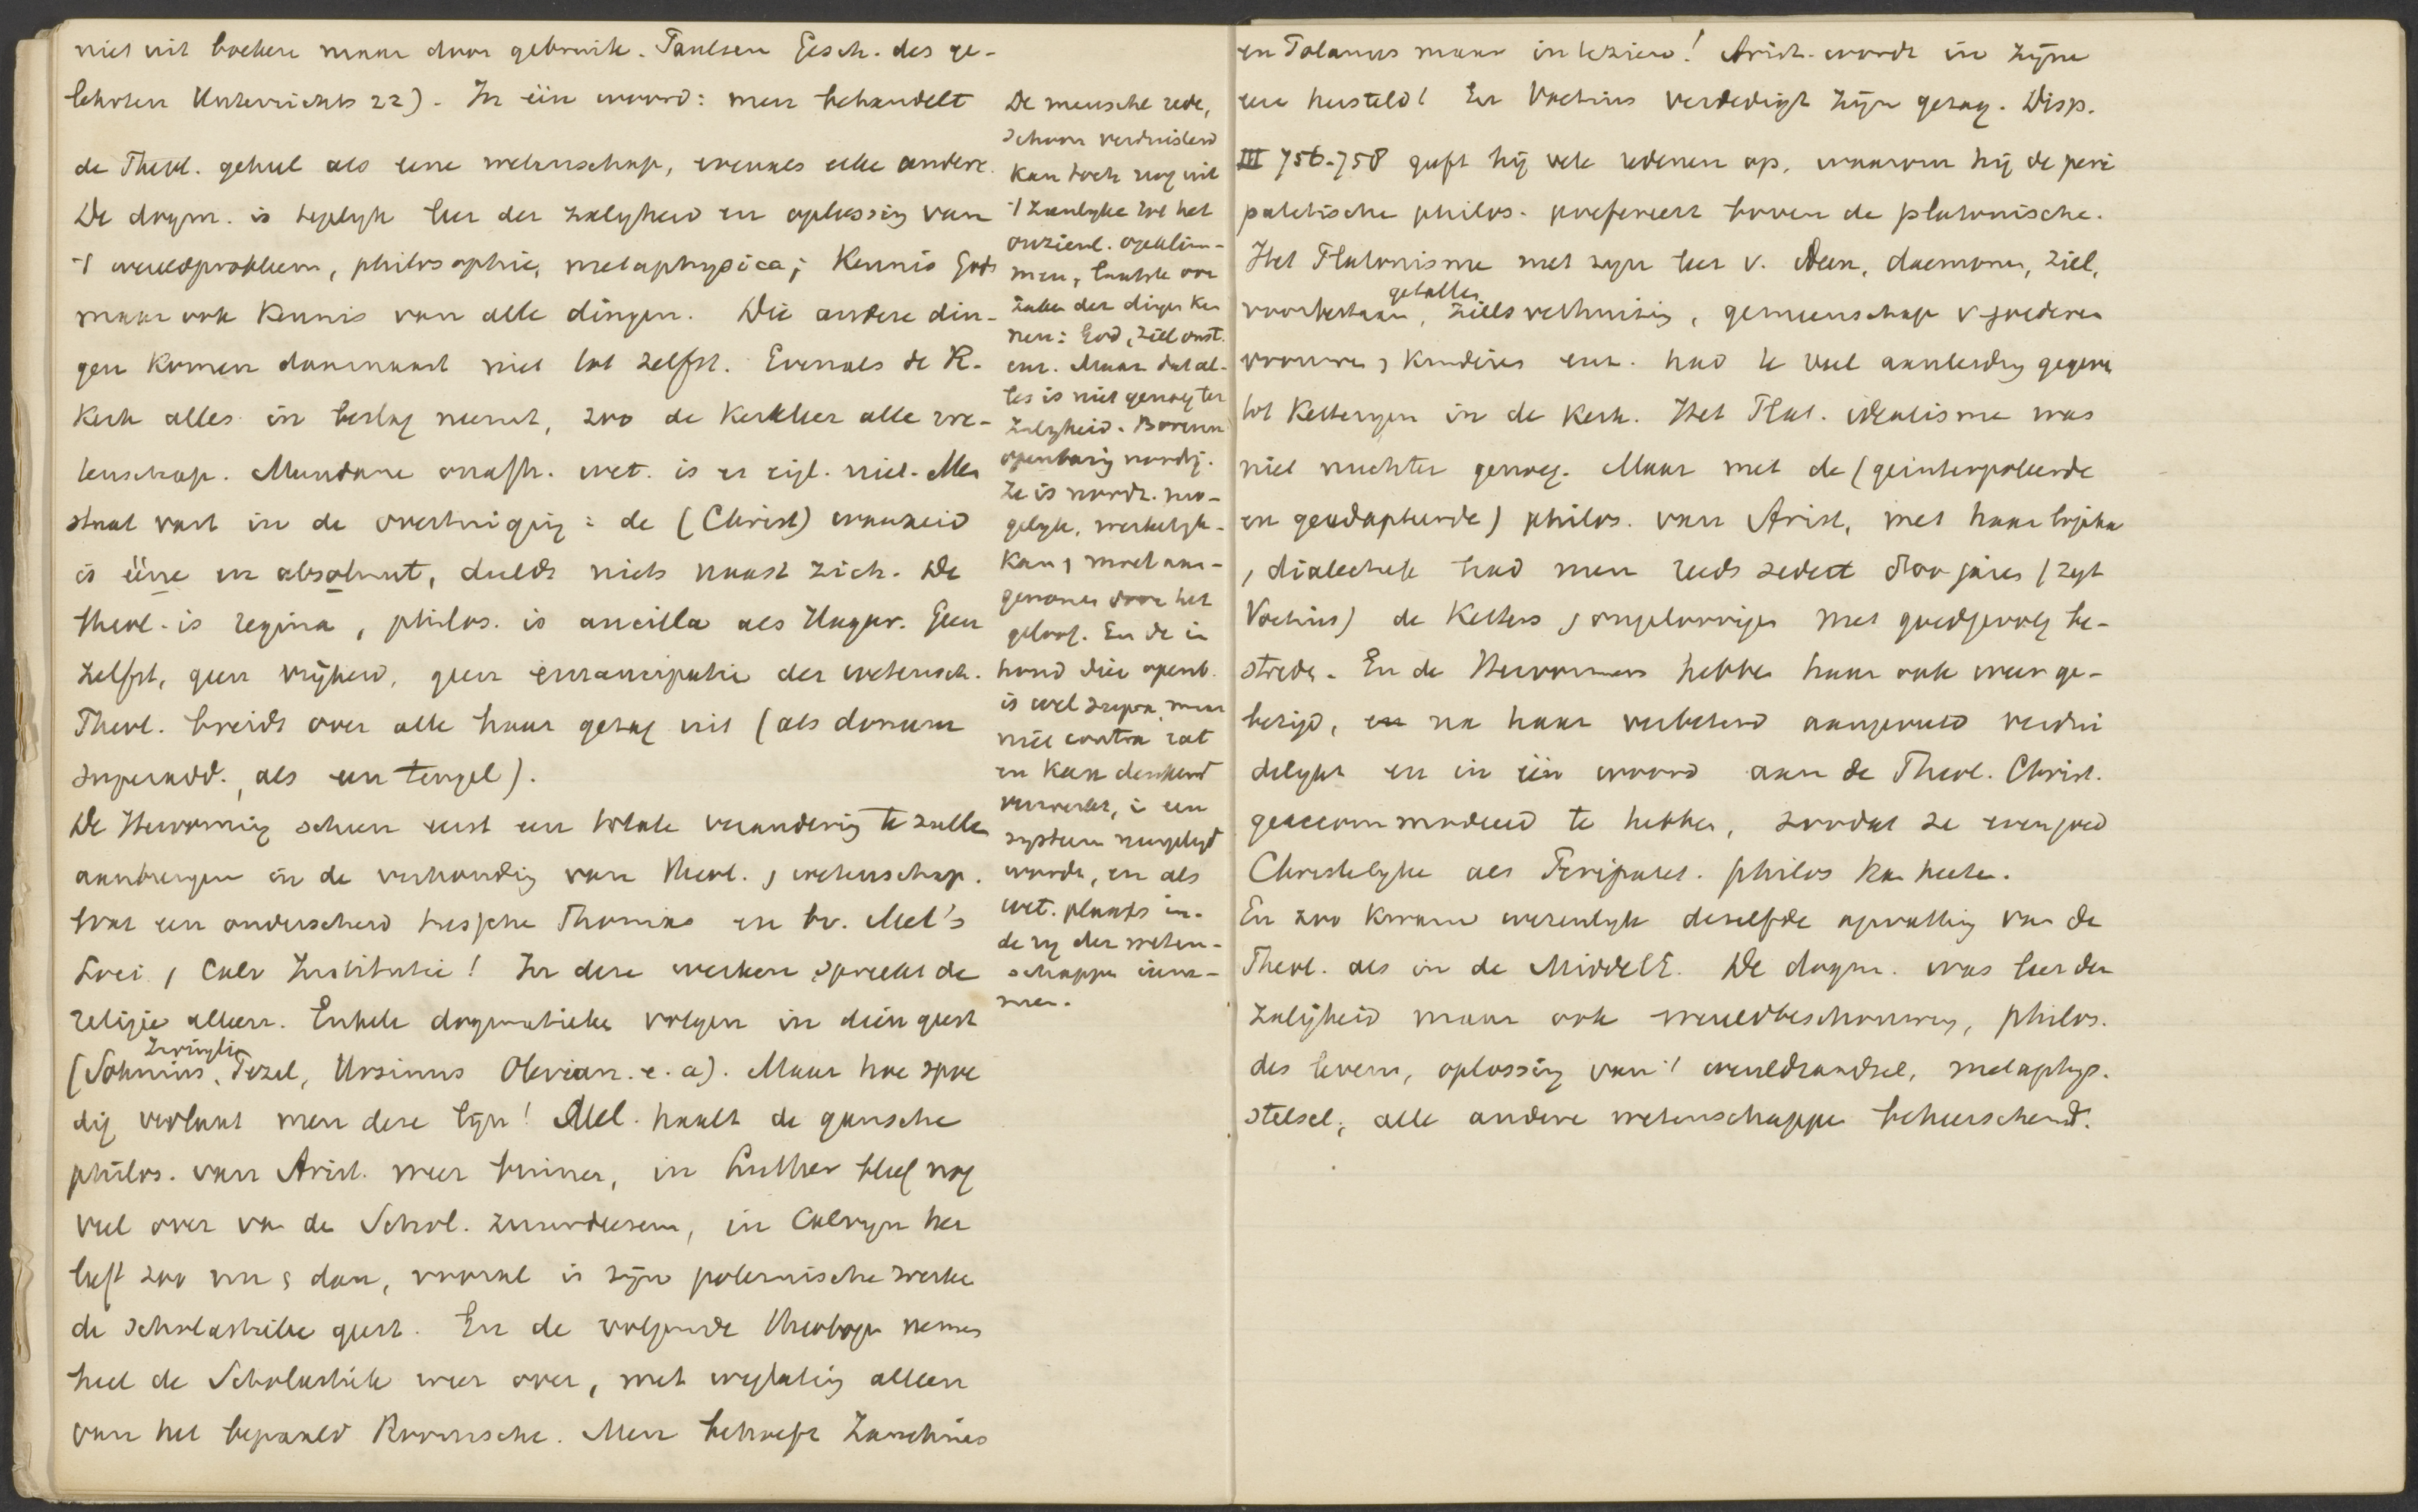 niet uit boeken maar door gebruik. Paulsen Gesch. des ge-
lehrten Unterrichts 22). In één woord: men behandelt
de Theol. geheel als eene wetenschap, evenals elke andere.
De dogm. is tegelyk leer der zaligheid en oplossing van
't wereldprobleem, philosophie, metaphysica; Kennis Gods
maar ook Kennis van alle dingen. Die andere din-
gen komen daarnaast niet tot zelfst. Evenals de R.
Kerk alles in beslag neemt, zoo de Kerkleer alle we-
tenschap. Mundane onafh. wet. is er eigl. niet. Men
staat vast in de overtuiging: de (Christ) waarheid
is ééne en absoluut, duldt niets naast zich. De
theol. is regina, philos. is ancilla als Hagar. Geen
zelfst, geen vrijheid, geen emancipatie der wetensch.
Theol. breidt over alle haar gezag uit (als donum
superadd., als een teugel).
De Hervorming scheen eerst een totale verandering te zullen
aanbrengen in de verhouding van theol. , wetenschap.
Wat een onderscheid tusschen Thomas en bv. Mel's
Loci , Calv Institutie! In deze werken spreekt de
religie alleen. Enkele dogmatieken volgen in dien geest
Zwingli
(Sohnius, Pezel, Ursinus Olevian. e. a). Maar hoe spoe
dig verlaat men deze lijn! Mel. haalt de gansche
philos. van Arist. weer binnen, in Luther bleef nog
veel over van de Schol. zuurdeesem, in Calvyn her
leeft zoo nu , dan, vooral in zijn polemische werken
de scholastieke geest. En de volgende theologen nemen
heel de Scholastiek weer over, met weglating alleen
van het bepaald Roomsche. Men behoeft Zanchius
De mensche rede,
schoon verduisterd
kan toch nog uit
't zienlyke tot het
onzienl. opklim-
men, laatste oor
zaken der dingen ken
nen: God, ziel onst.
enz. Maar dat al-
les is niet genoeg ter
zaligheid. Boven
openbaring noodig.
Ze is noodz. mo-
gelyk, werkelyk-
kan , moet aan-
genomen door het
geloof. En de in
houd dier openb.
is wel supra, maar
niet contra rat
en kan denkend
verwerkt, in een
systeem neergelegd
worden, en als
wet. plaats in
de rij der weten-
schappen inne-
men.
en Polanus maar in te zien! Arist. wordt in zijne
eere hersteld! En Voetius verdedigt zijn gezag. Disp.
III 756-758 geeft hij vele redenen op, waarom hij de peri
patetische philos. prefereert boven de platonische.
Het Platonisme met zijn leer v. ideen, daemonen, ziel,
getallen
voorbestaan, zielsverhuizing, gemeenschap v goederen
vrouwen , kinderen enz. had te veel aanleiding gegeven
tot Ketteryen in de Kerk. Het Plat. idealisme was
niet nuchter genoeg. Maar met de (geinterpoleerde
en geadapteerde) philos. van Arist, met haar logika
, dialectiek had men reeds sedert 800 jaren (zegt
Voetius) de Ketters , ongeloovigen met goed gevolg be-
streden. En de Hervormers hebben haar ook weer ge-
bezigd, na haar verbeterd aangevuld verdui
delykt en in één woord aan de Theol. Christ.
geaccommodeerd te hebben, zoodat ze evengoed
Christelyke als Peripatet. philos kan heeten.
En zoo kwam wezenlyk dezelfde opvatting van de
Theol. als in de Middel E. De dogm. was leer der
zaligheid maar ook wereldbeschouwing, philos.
des levens, oplossing van 't wereldraadsel, metaphys.
stelsel, alle andere wetenschappen beheerschend.